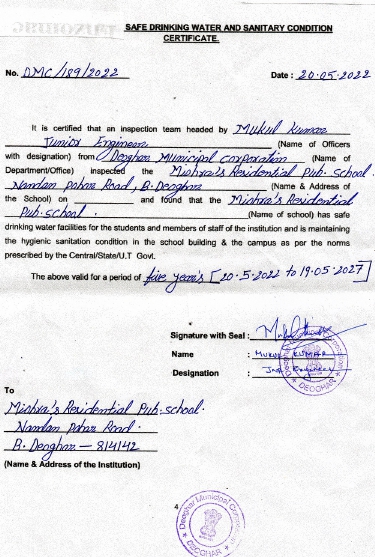 SAFE DRINKING WATER AND SANITARY CONDITION
CERTIFICATE.
No. DMC/189/2022 Date : 20.05.2022
It is certified that an inspection team headed by Mukul Kumar
Junior Engineer (Name of Officers
with designation) from Deoghar Municipal corporation (Name of
Department/Office) inspected the Mishra's Residential Pub. School
Nandan Pahar Road, B. Deoghar (Name & Address of
the School) on and found that the Mishra's Residential
Pub. school. (Name of school) has safe
drinking water facilities for the students and members of staff of the institution and is maintaining
the hygienic sanitation condition in the school building & the campus as per the norms
prescribed by the Central/State/U.T Govt.
The above valid for a period of five year's [20.5.2022 to 19.05.2027]
Signature with Seal :
Name : MUKUL KUMAR
Designation : Jr. Engineer
Deoghar Municipal Corporation
DEOGHAR
To
Mishra's Residential Pub. school.
Nandan Pahar Road.
B. Deoghar — 814142
(Name & Address of the Institution)
4
Deoghar Municipal Corporation
DEOGHAR